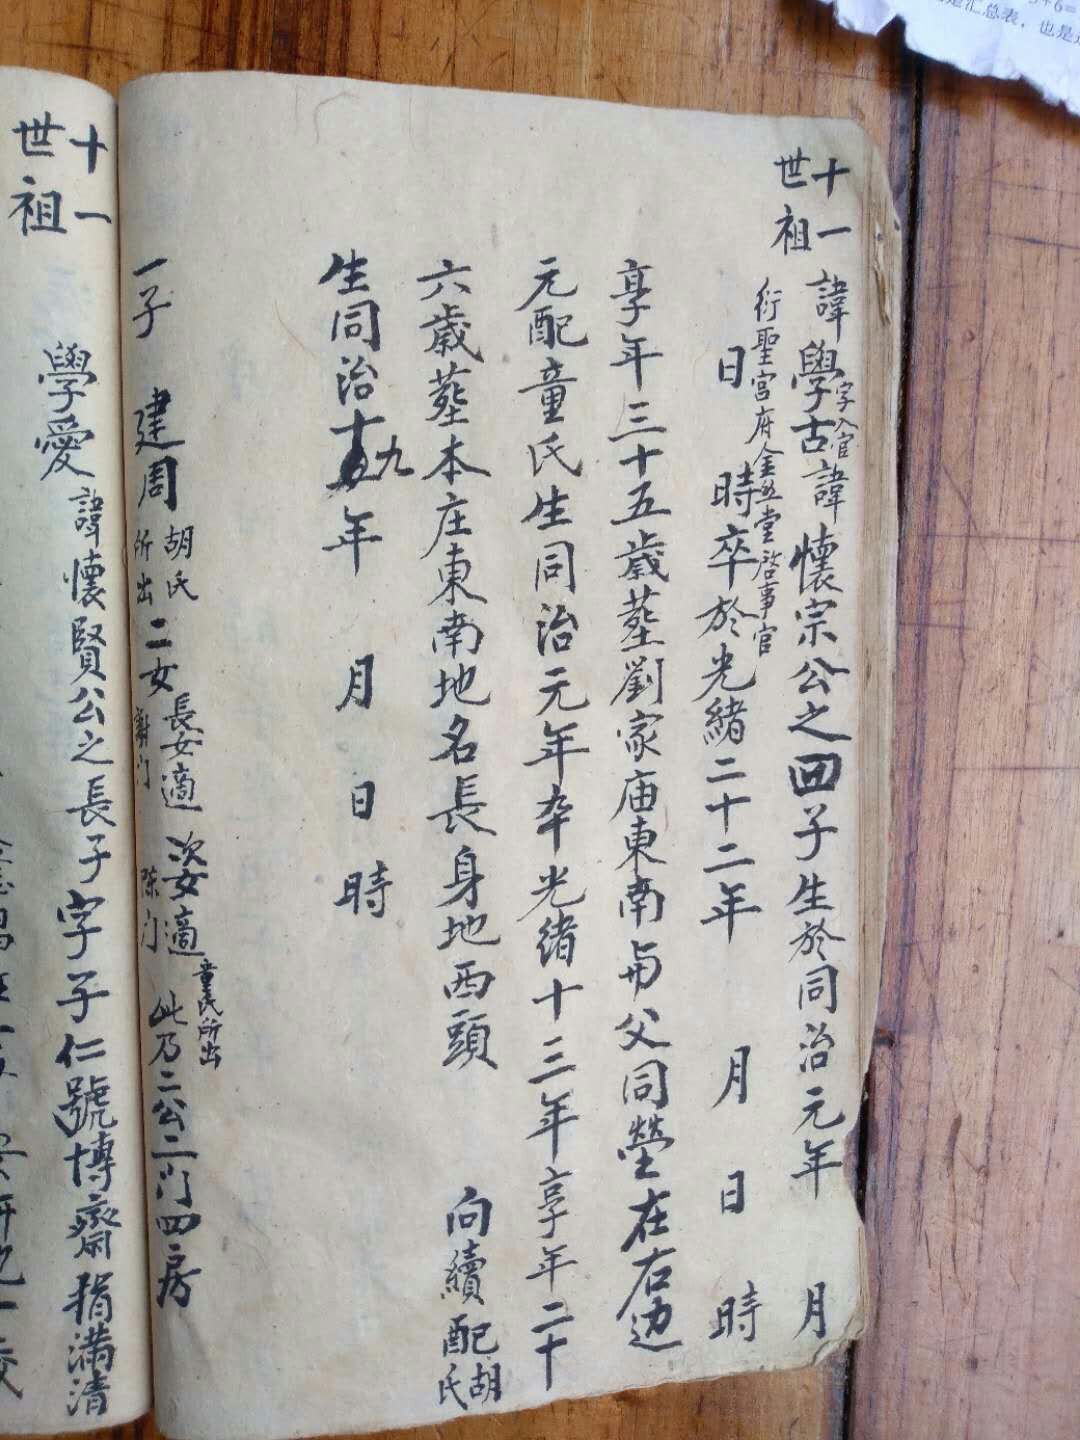 十一
世祖
諱學古字入官諱懷宗公之四子生於同治元年 月
衍聖宫府金絲堂啓事官
日 時卒於光緒二十二年 月 日 時
享年三十五歲葬劉家庙東南与父同塋在右边
元配童氏生同治元年卒光绪十三年享年二十
六歲葬本庄東南地名長身地西頭 向續配胡氏
生同治九年 月 日 時
一子 建周胡氏所出二女長女適 門次女適陳门童氏所出 此乃二公二门四房
十一
世祖
學愛諱懷賢公之長子字子仁號博齋 滿清